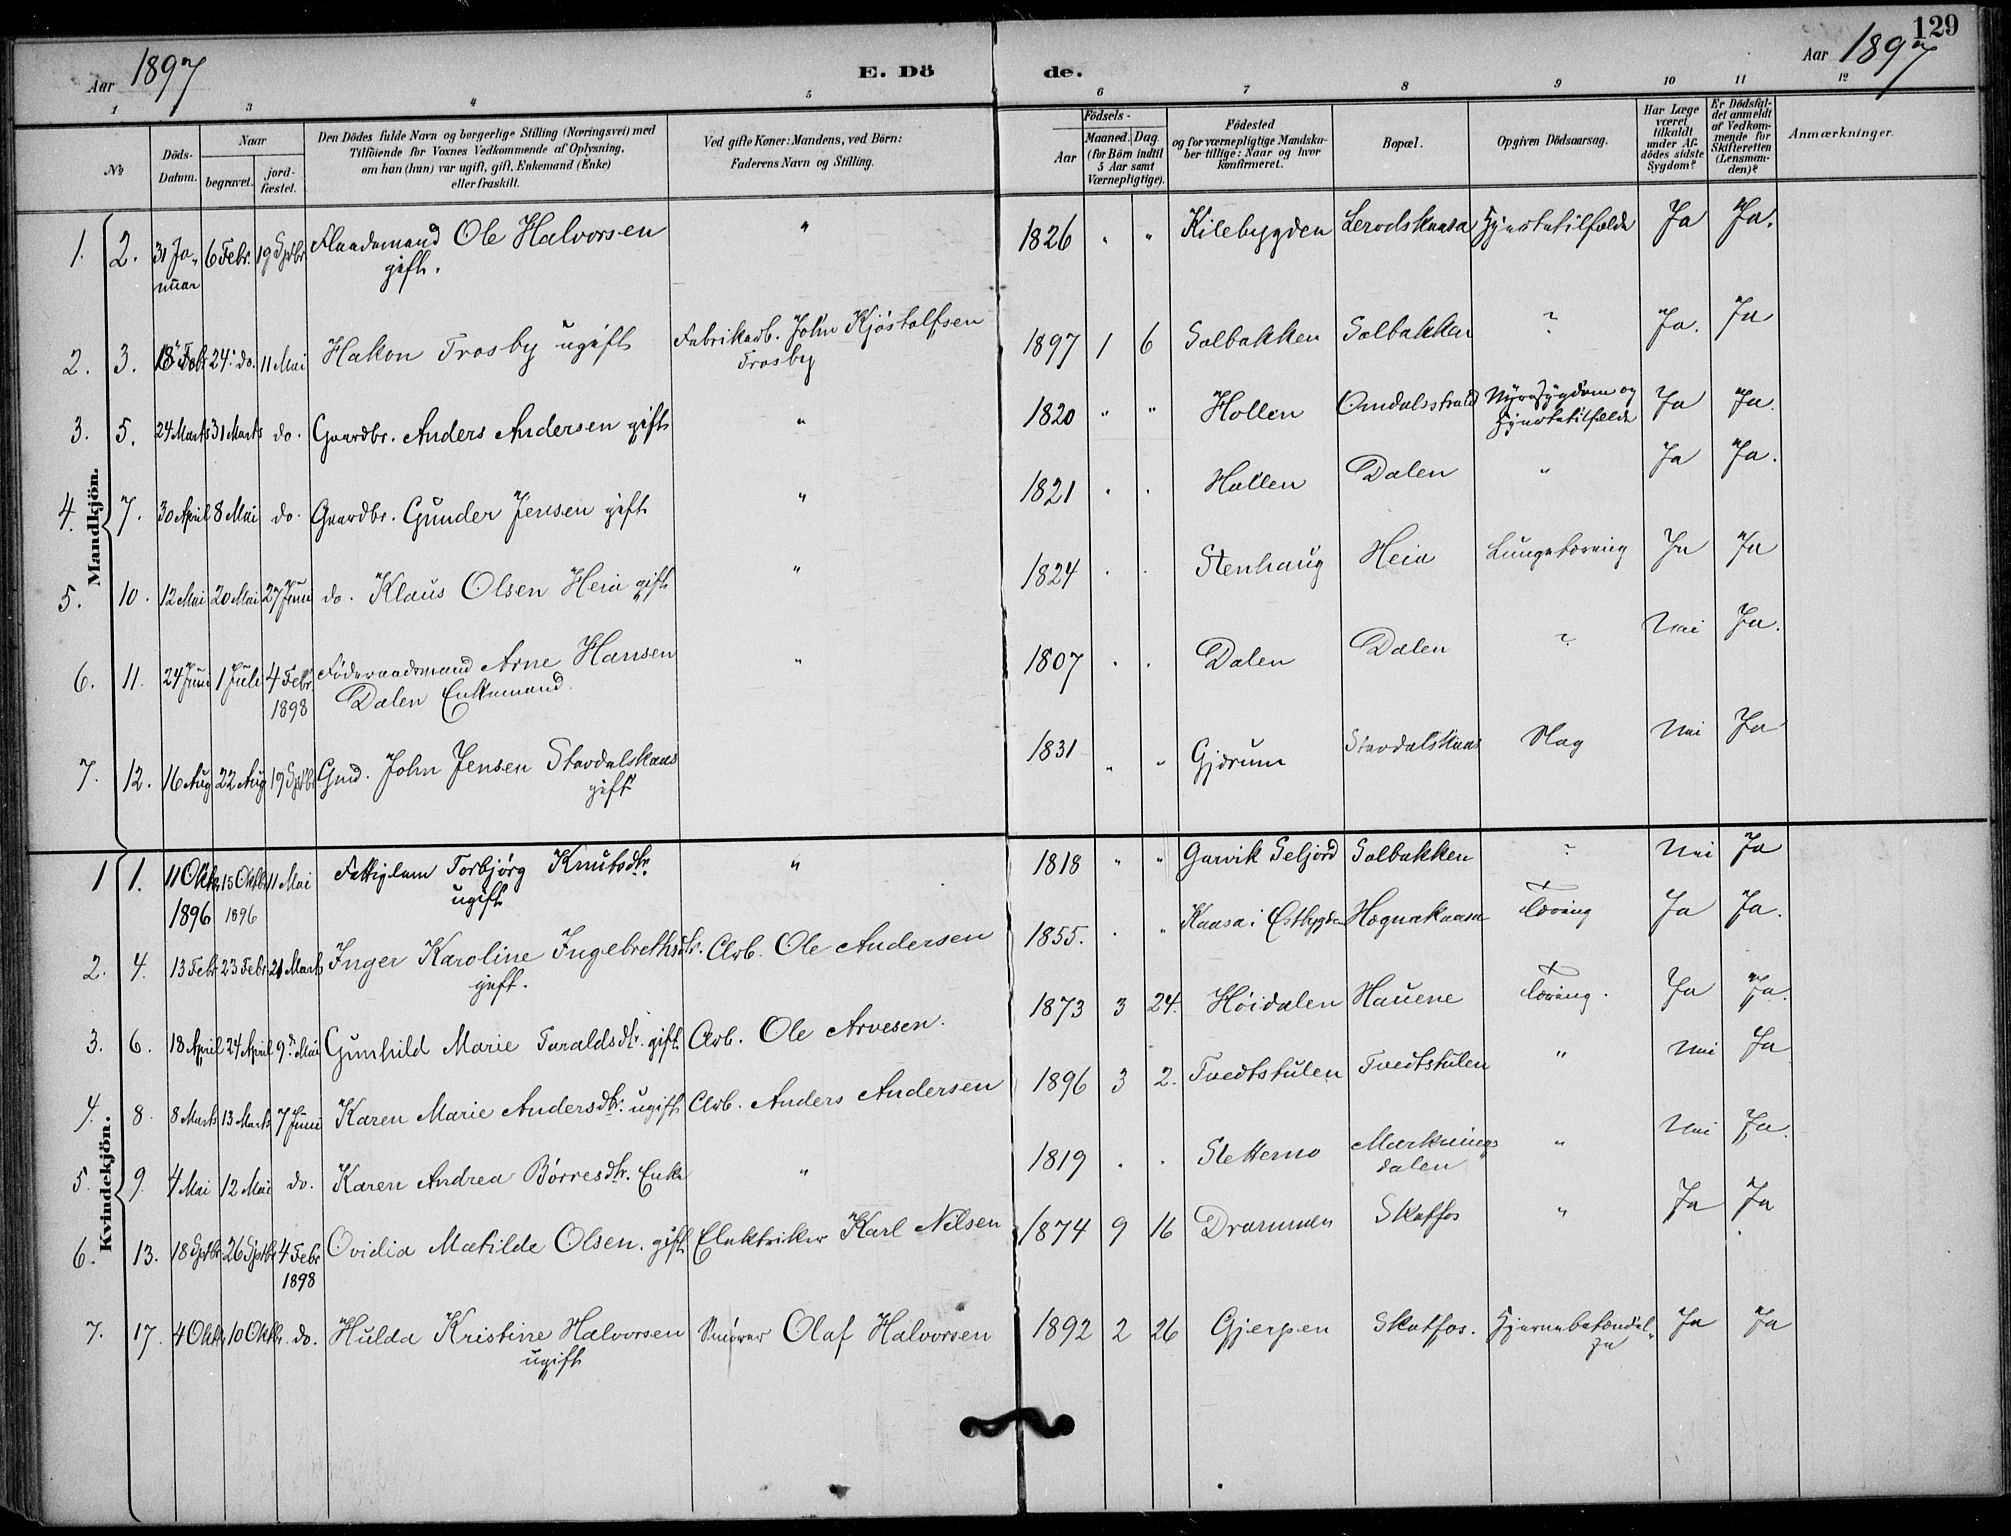 129
Aar 1897 E. Dö de. Aar 1897
1 3 4 5 6 7 8 9 10 11 12
№
Döds-
Datum.
Naar
begravet.
jord-
fæstet.
Den Dödes fulde Navn og borgerlige Stilling (Næringsvei) med
Tilföiende for Voxnes Vedkommende af Oplysning,
om han (hun) var ugift, gift, Enkemand (Enke)
eller fraskilt.
Ved gifte Koner: Mandens, ved Börn:
Faderens Navn og Stilling.
Födsels-
Aar
Maaned. Dag
(for Börn indtil
5 Aar samt
Værnepligtige).
Födested
og for værnepligtige Mandska-
ber tillige: Naar og hvor
konfirmeret.
Bopæl.
Opgiven Dödsaarsag.
Har Læge
været
tilkaldt
under Af-
dödes sidste
Sygdom?
Er Dödsfal-
det anmeldt
af Vedkom-
mende for
Skifteretten
(Lensman-
den)?
Anmærkninger.
Mandkjön.
1. 2. 31 Ja- 6 Febr. 19 Sptbr Flaademand Ole Halvorsen " 1826 " " Kilebygden Lerodskaasa Hjertetilfælde Ja Ja.
nuar gift.
2. 3. 18 Febr 24 do. 11 Mai Hakon Trosby ugift Fabrikarb. John Kjöstolfsen 1897 1 6 Solbakken Solbakken ? Ja. Ja
Trosby
3. 5. 24 Marts 31 Marts do. Gaardbr. Anders Andersen gift " 1820 " " Hollen Omdalsstrand Nyresygdom og Ja Ja.
Hjertetilfælde
4. 7. 30 April 8 Mai do. Gaardbr. Gunder Jensen gift " 1821 . . Hollen Dalen " Ja Ja.
5. 10. 12 Mai 20 Mai 27 Juni do. Klaus Olsen Heia gift " 1824 . . Stenhaug Heia Lungetæring Ja Ja
6. 11. 24 Juni 1 Juli 4 Febr. Föderaadsmand Arne Hansen " 1807 . . Dalen Dalen ? Nei Ja.
1898 Dalen Enkemand.
7. 12. 16 Aug 22 Aug 19 Sptbr Gmd. John Jensen Stavdalskaas 1831 " " Gjerum Stavdalskaas Slag Nei Ja
gift
Kvindekjön.
1 1. 11 Oktbr 15 Oktbr 11 Mai Fattiglem Torbjørg Knutsdtr. " 1818 " " Garvik Seljord Solbakken ? Nei Ja
1896 1896 ugift
2. 4. 13 Febr 23 Febr 21 Marts Inger Karoline Ingebrethsdtr. Arb. Ole Andersen 1855. . " Kaasa i Østbygden Hegnakaasa Tæring Ja Ja.
gift.
3. 6. 18 April 24 April 9 Mai Gunhild Marie Taraldsdtr. gift Arb. Ole Arvesen. 1873 3 24. Høidalen Hauene Tæring. Ja Ja.
4. 8. 8 Marts 13 Marts 7 Juni Karen Marie Andersdtr. ugift Arb. Anders Andersen 1896 3 2. Tvedtstulen Tvedtstulen " Nei Ja
5. 9. 4 Mai 12 Mai do. Karen Andrea Børresdtr. Enke " 1819 . . Slettemo Merknings " Nei Ja.
dalen
6. 13. 18 Sptbr 26 Sptbr 4 Febr Ovidia Matilde Olsen. gift Elektriker Karl Nilsen 1874 9 16 Drammen Skotfos " Ja Ja
1898
7. 17. 4 Oktbr 10 Oktbr. do. Hulda Kristine Halvorsen Smører Olaf Halvorsen 1892 2 26 Gjerpen Skotfos. Hjernebetændel- Ja Ja
ugift se